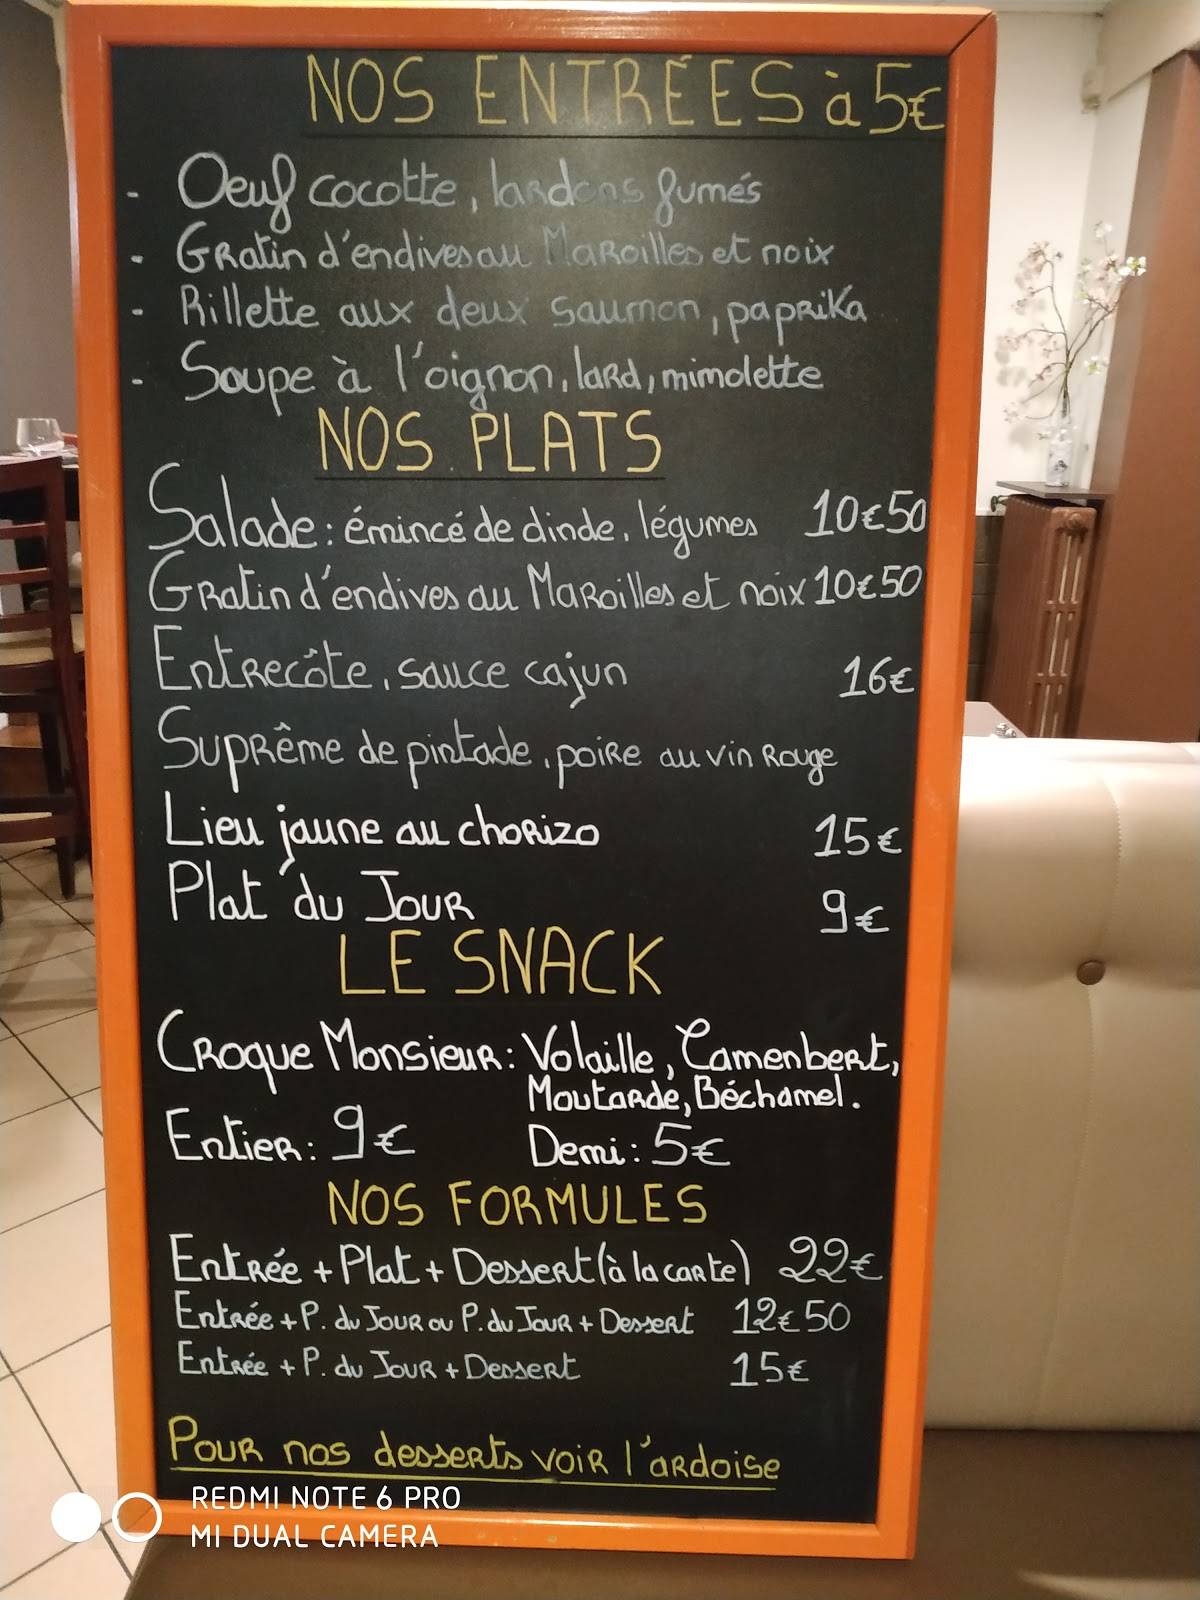 NOS ENTRÉES à 5€
- Oeuf cocotte, lardons fumés
- Gratin d'endives au Maroilles et noix
- Rillette aux deux saumon, paprika
- Soupe à l'oignon, lard, mimolette
NOS PLATS
Salade : émincé de dinde, légumes 10€50
Gratin d'endives au Maroilles et noix 10€50
Entrecôte, sauce cajun 16€
Suprême de pintade, poire au vin Rouge
Lieu jaune au chorizo 15€
Plat du Jour 9€
LE SNACK
Croque Monsieur : Volaille, Camenbert,
Moutarde, Béchamel.
Entier : 9€ Demi : 5€
NOS FORMULES
Entrée + Plat + Dessert (à la carte) 22€
Entrée + P. du Jour ou P. du Jour + Dessert 12€50
Entrée + P. du Jour + Dessert 15€
Pour nos desserts voir l'ardoise
REDMI NOTE 6 PRO
MI DUAL CAMERA